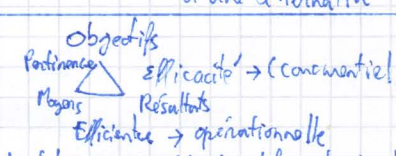 Objectifs
Pertinence
Efficacité → (concurrentiel
Moyens Résultats
Efficience → opérationnelle